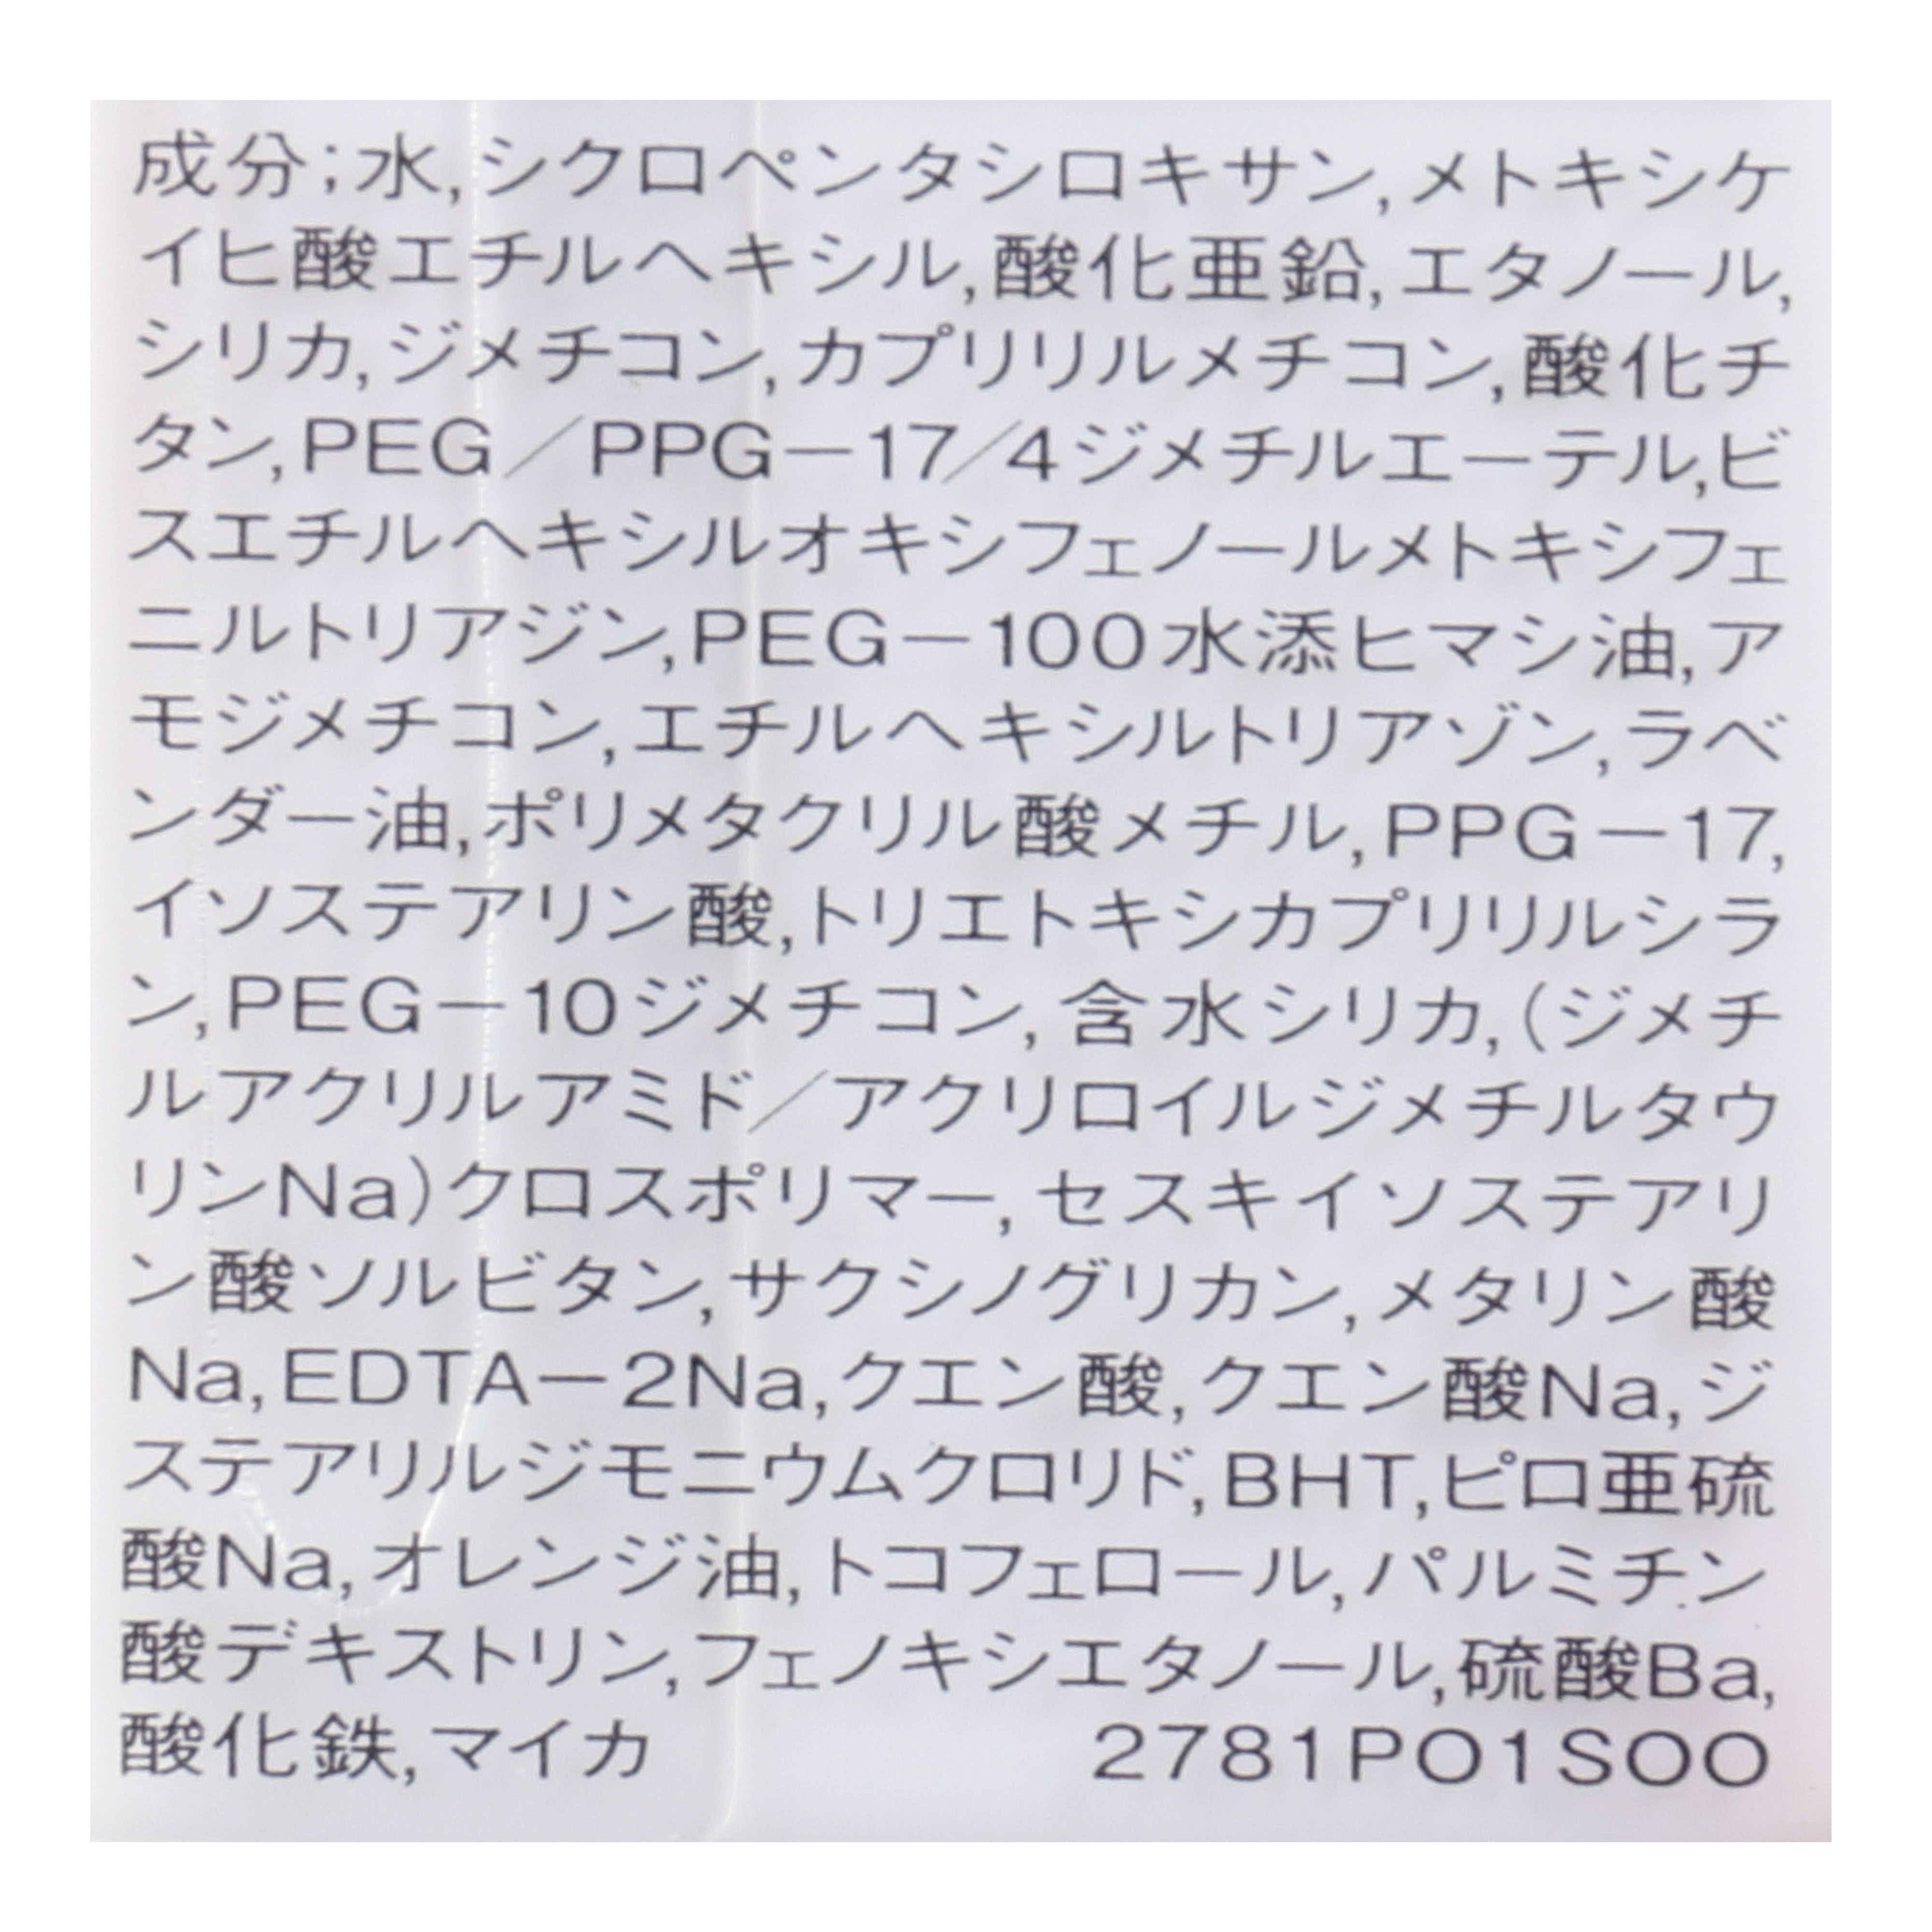 成分;水,シクロペンタシロキサン,メトキシケ
イヒ酸エチルヘキシル,酸化亜鉛,エタノール,
シリカ,ジメチコン,カプリリルメチコン,酸化チ
タン,PEG/PPG-17/4ジメチルエーテル,ビ
スエチルヘキシルオキシフェノールメトキシフェ
ニルトリアジン,PEG-100水添ヒマシ油,ア
モジメチコン,エチルヘキシルトリアゾン,ラベ
ンダー油,ポリメタクリル酸メチル,PPG-17,
イソステアリン酸,トリエトキシカプリリルシラ
ン,PEG-10ジメチコン,含水シリカ,(ジメチ
ルアクリルアミド/アクリロイルジメチルタウ
リンNa)クロスポリマー,セスキイソステアリ
ン酸ソルビタン,サクシノグリカン,メタリン酸
Na,EDTA-2Na,クエン酸,クエン酸Na,ジ
ステアリルジモニウムクロリド,BHT,ピロ亜硫
酸Na,オレンジ油,トコフェロール,パルミチン
酸デキストリン,フェノキシエタノール,硫酸Ba,
酸化鉄,マイカ 2781PO1SOO